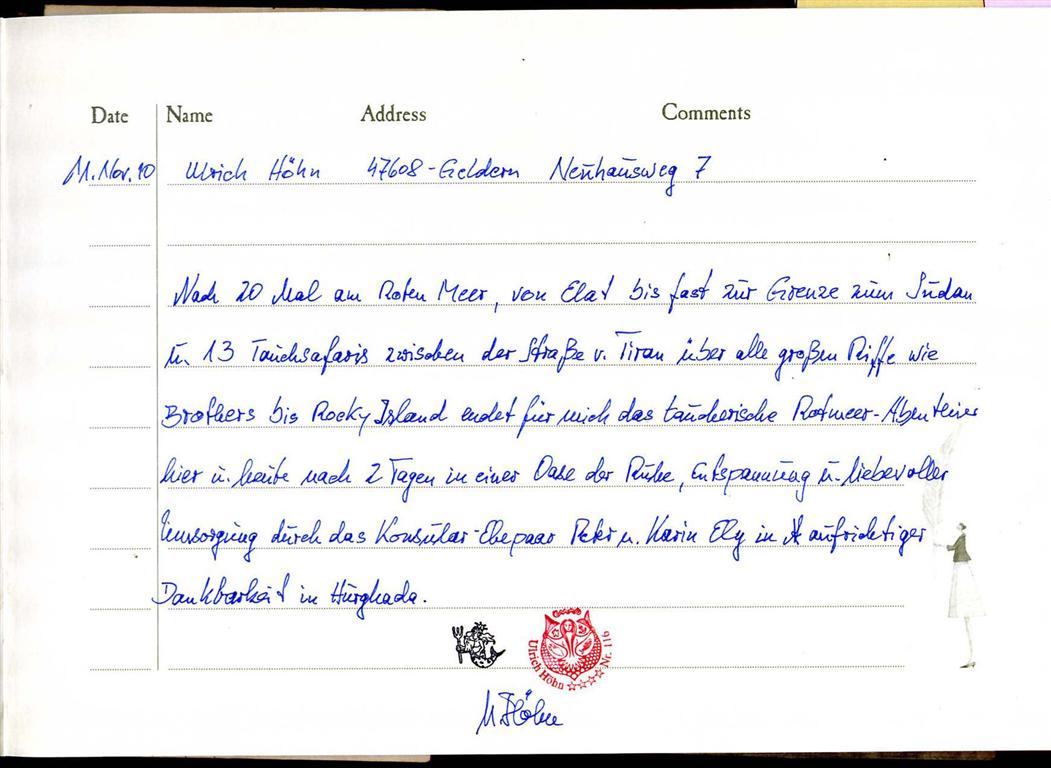 Date Name Address Comments
11. Nov. 10 Ulrich Höhn 47608-Geldern Neuhausweg 7
Nach 20 Mal am Roten Meer, von Elat bis fast zur Grenze zum Sudan
u. 13 Tauchsafaris zwischen der Straße v. Tiran über alle großen Riffe wie
Brothers bis Rocky Island endet für mich das taucherische Rotmeer-Abenteuer
hier u. heute nach 2 Tagen in einer Oase der Ruhe, Entspannung u. liebevoller
Umsorgung durch das Konsular-Ehepaar Peter u. Karin Ely in aufrichtiger
Dankbarkeit in Hurghada.
Ulrich Höhn Nr. 116
U Höhn